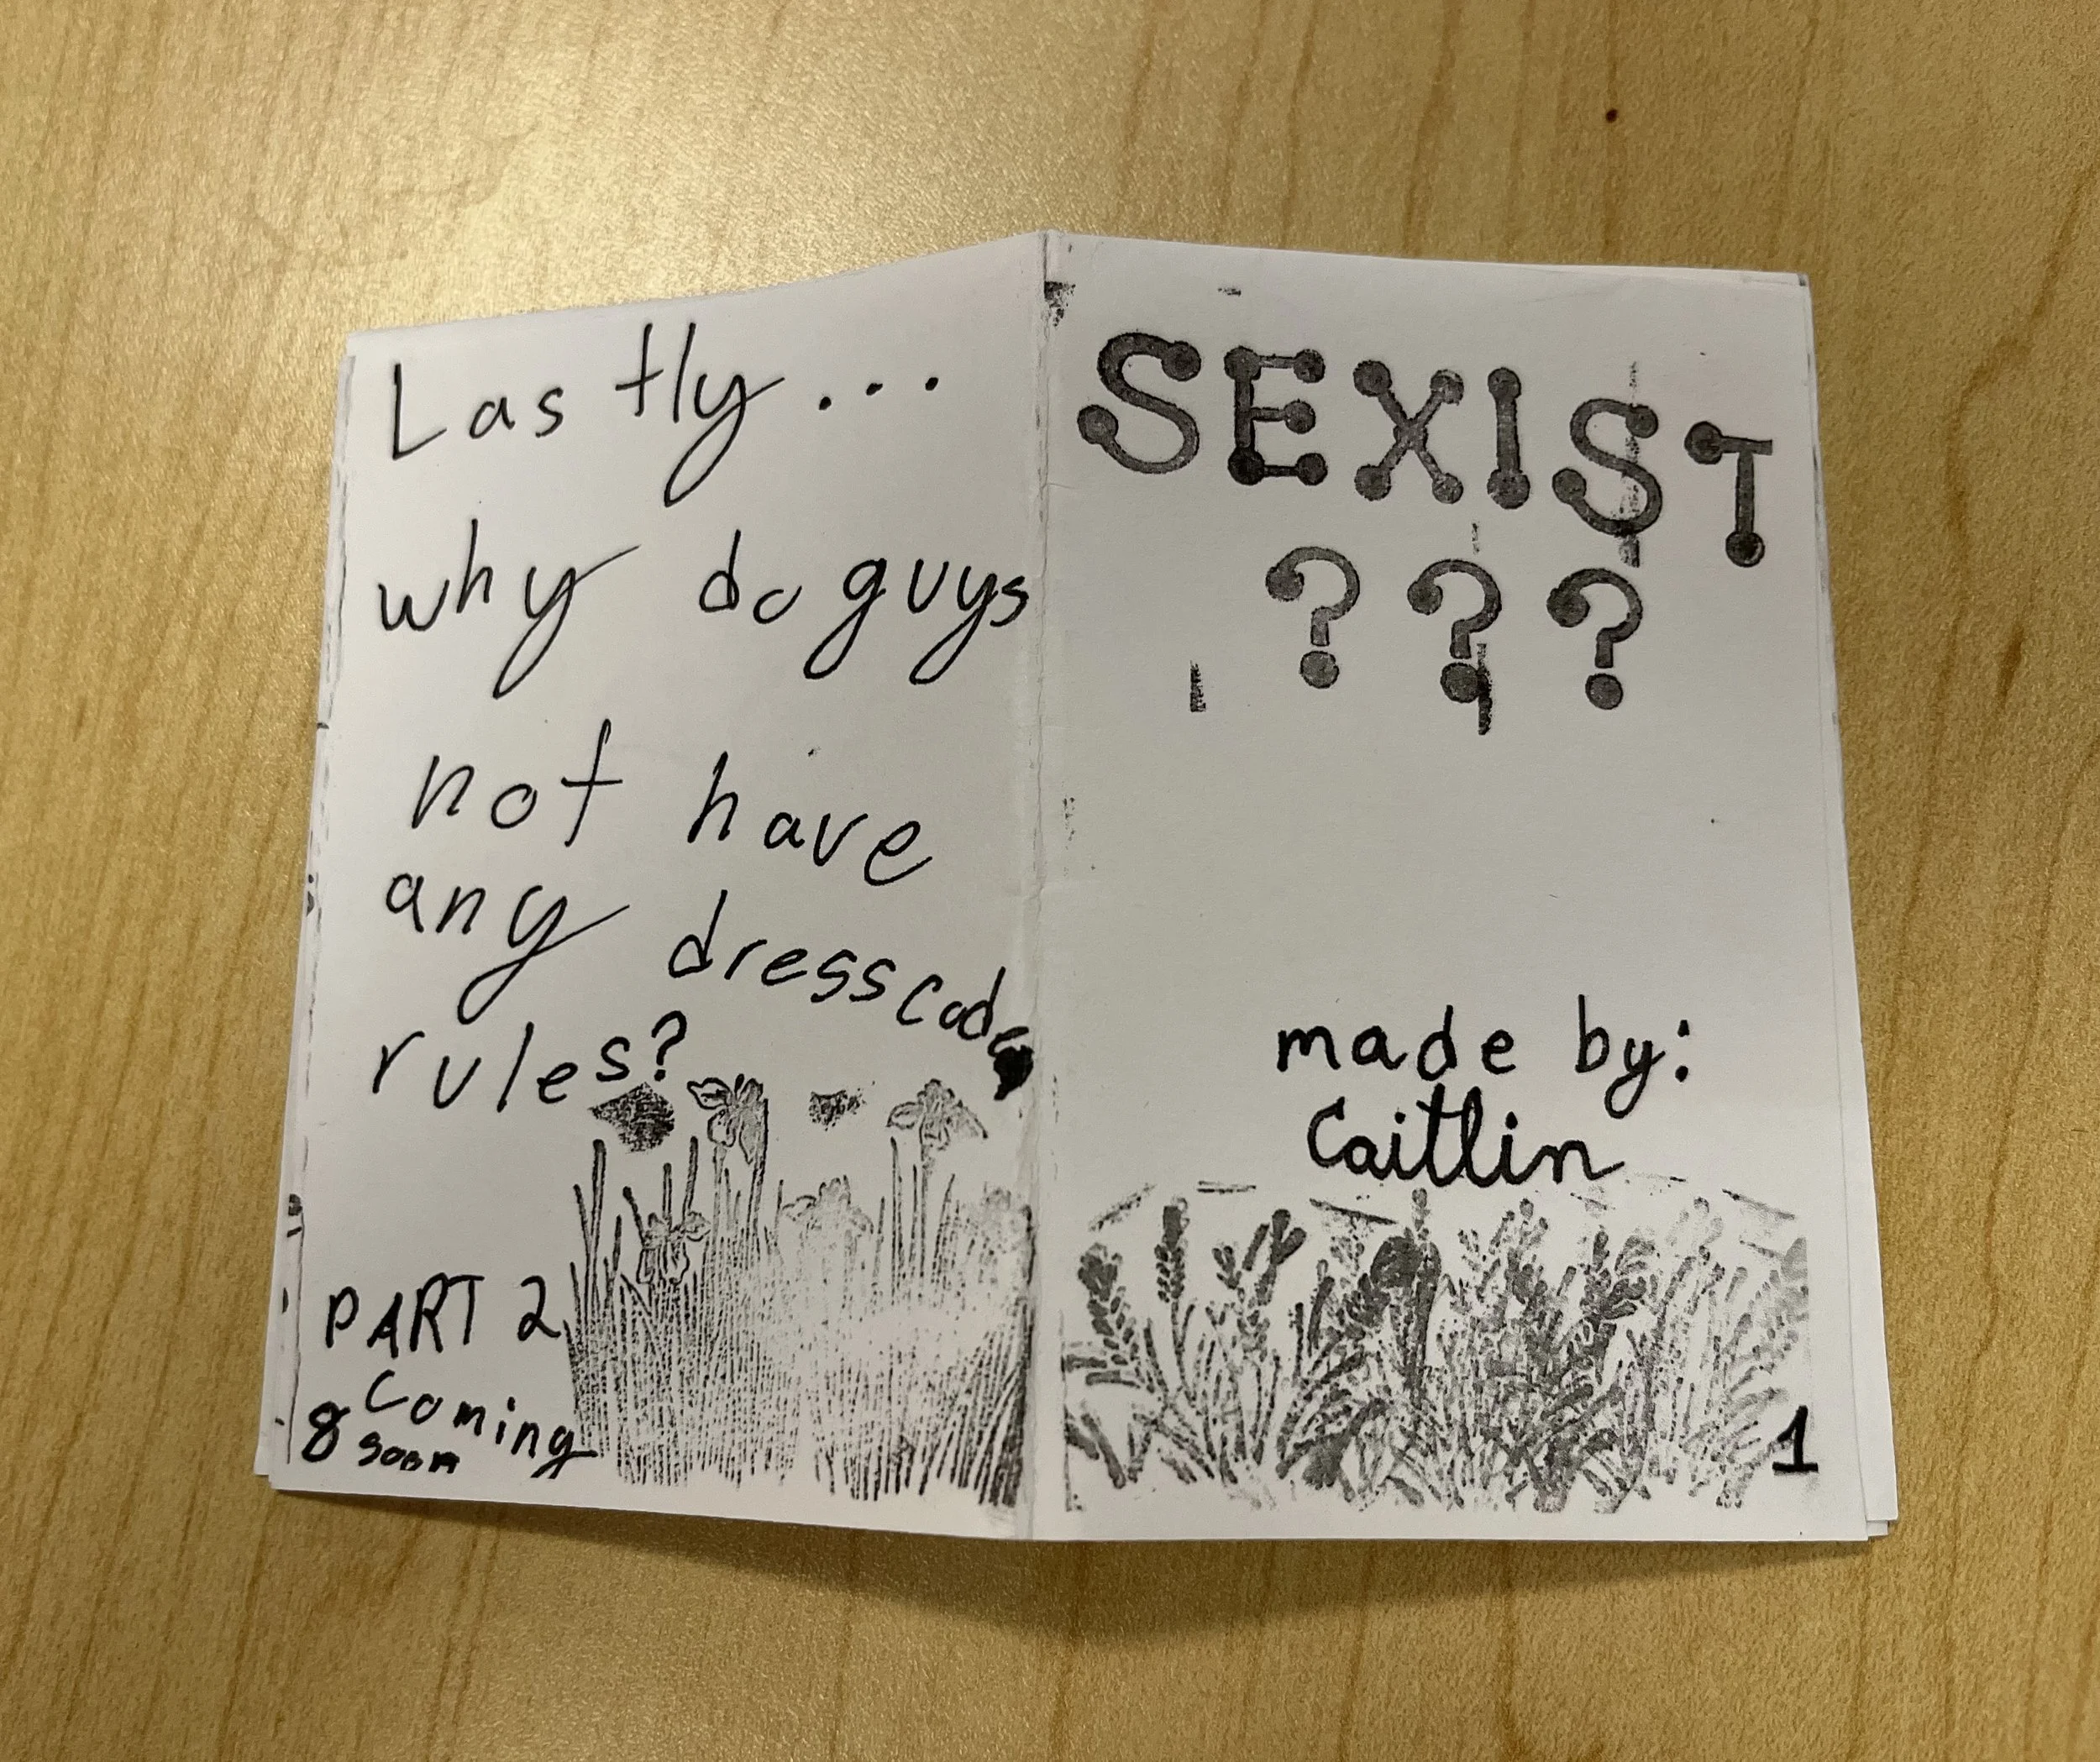 Lastly...
why do guys
not have
any dresscode
rules?
PART 2
coming
8 soon
SEXIST
???
made by:
Caitlin
1